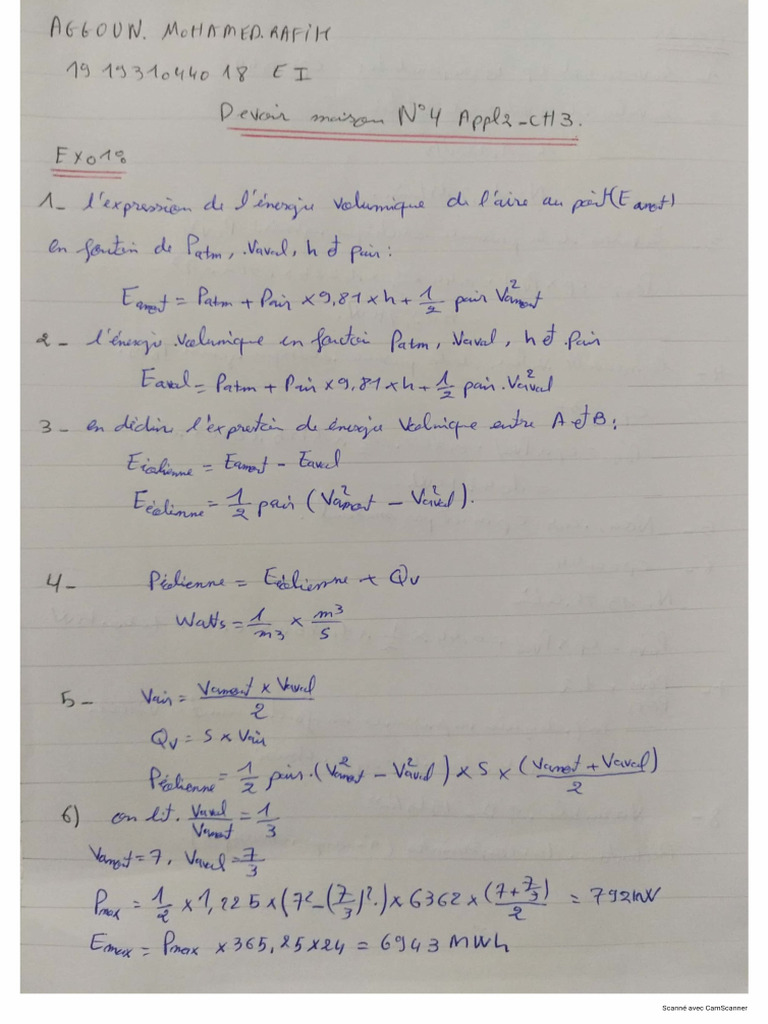 AGGOUN. MOHAMED.RAFIK
19 1931044018 EI
Devoir maison N°4 Appl2-CH3.
Exo1:
1- l'expression de l'énergie volumique de l'aire au point (Eamont)
en fonction de Patm, Vaval, h et ρair:
Eamont = Patm + ρair × 9,81 × h + 1/2 ρair Vamont²
2- l'énergie volumique en fonction Patm, Vaval, h et ρair
Eaval = Patm + ρair × 9,81 × h + 1/2 ρair. Vaval²
3- en déduire l'expression de énergie volumique entre A et B:
Eéolienne = Eamont - Eaval
Eéolienne = 1/2 ρair (Vamont² - Vaval²).
4- Péolienne = Eéolienne × Qv
Watts = 1/m3 × m³/s
5- Vair = Vamont × Vaval / 2
Qv = S × Vair
Péolienne = 1/2 ρair. (Vamont² - Vaval²) × S × (Vamont + Vaval)/2
6) on lit. Vaval/Vamont = 1/3
Vamont = 7, Vaval = 7/3
Pmax = 1/2 × 1,225 × (7² - (7/3)².) × 6362 × (7 + 7/3)/2 = 792kW
Emax = Pmax × 365,25 × 24 = 6943 MWh
Scanné avec CamScanner